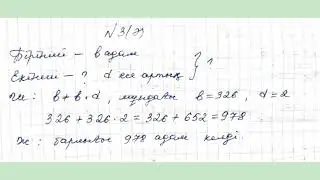 №3(ә)
Біртіні – в адам
Екінші – ? d есе артық } ?
Ш: в + в · d, мұндағы в = 326, d = 2
326 + 326 · 2 = 326 + 652 = 978
Ж: барлығы 978 адам келді.